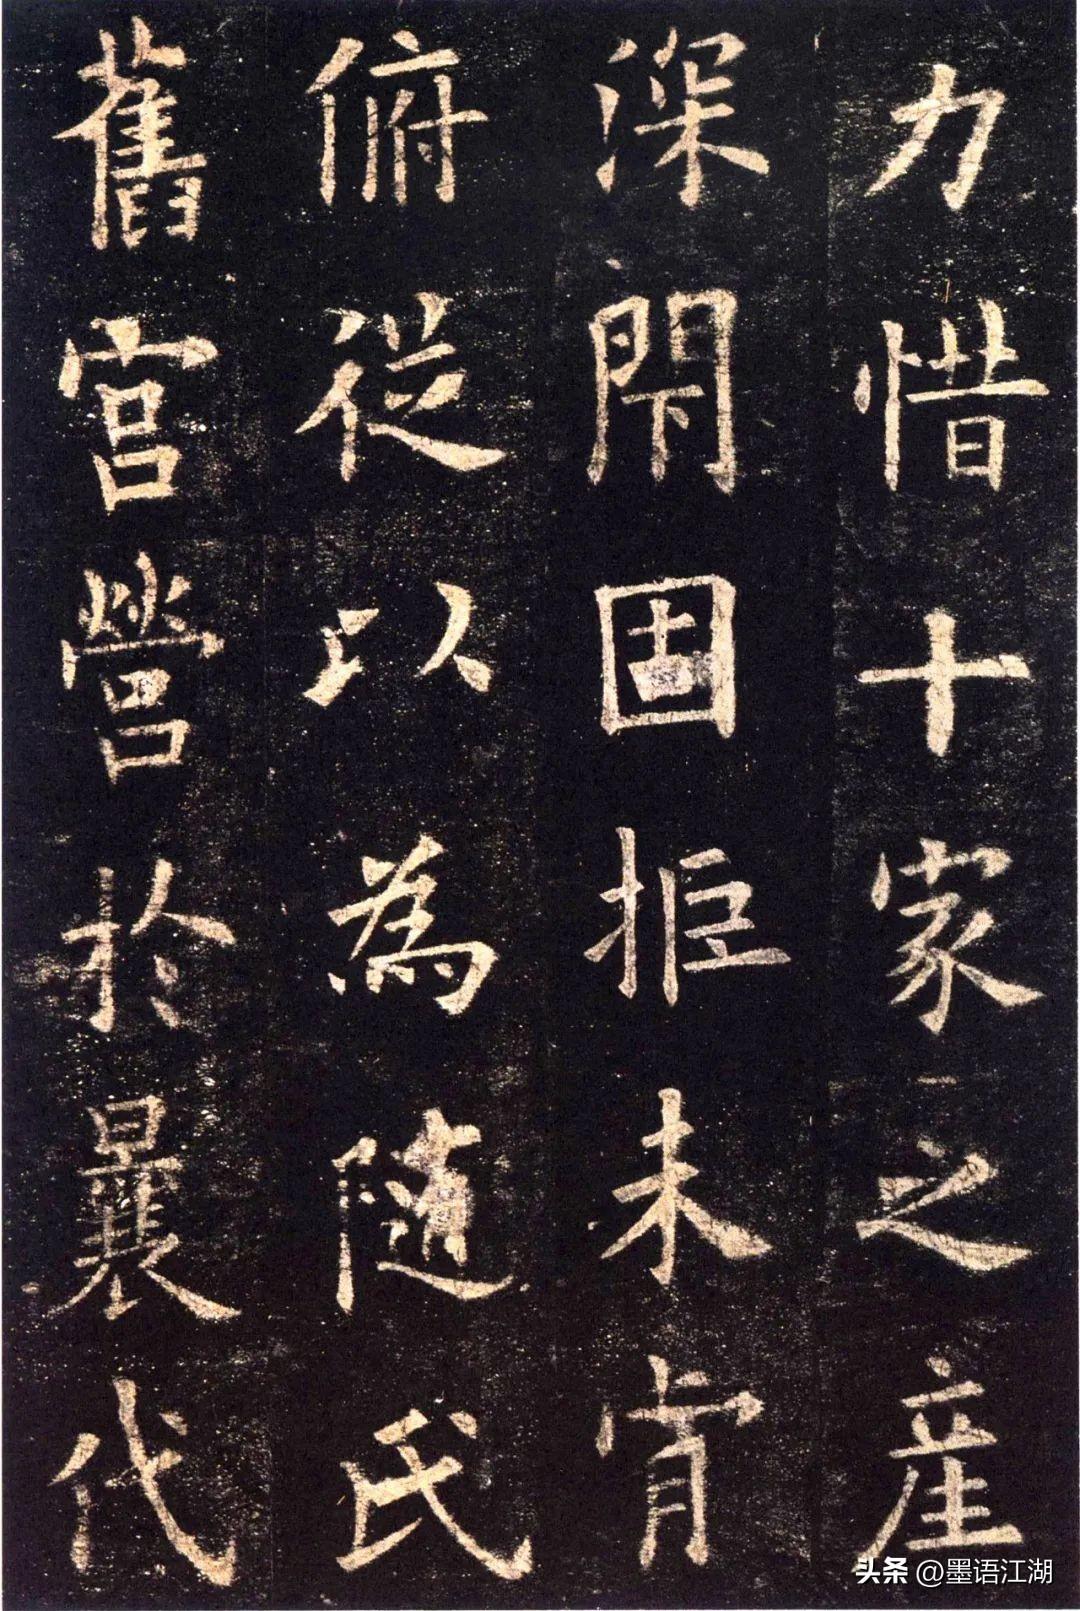 力惜十家之産
深閇固拒未肯
俯從以為随氏
舊宮營於曩代
头条 @墨语江湖